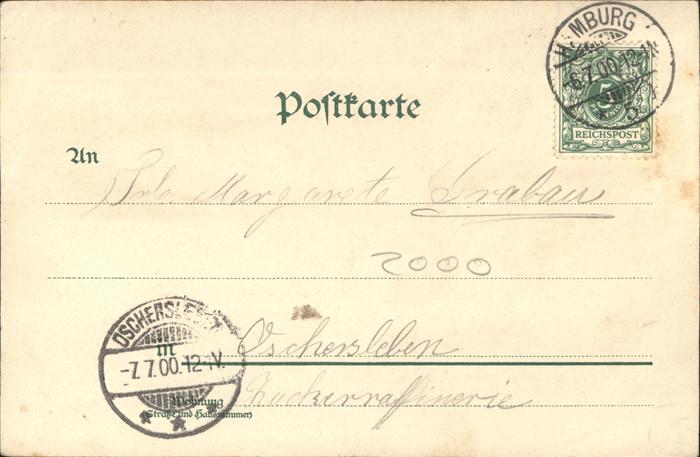 HAMBURG
6.7.00.12-1N
5
REICHSPOST
Postkarte
An
Frl. Margarete Grabau
2000
OSCHERSLEBEN
-7.7.00.12-1V.
in Oschersleben
Zuckerraffinerie
Wohnung
(Straße und Hausnummer)